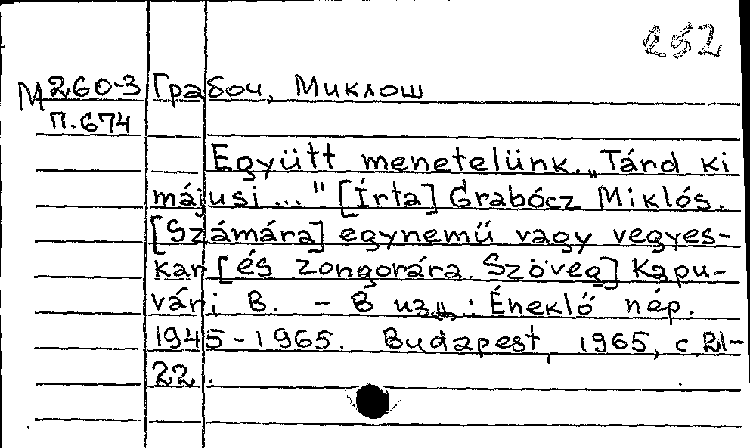 252
М 260-3 Грабоч, Миклош
п.674
Együtt menetelünk. „Tárd ki
májusi ..." [Írta] Grabócz Miklós.
[Számára] egynemű vagy vegyes-
kar [és zongorára. Szöveg] Kapu-
vári B. - В изд.: Éneklő nép.
1945-1965. Budapest, 1965, с 21-
22.